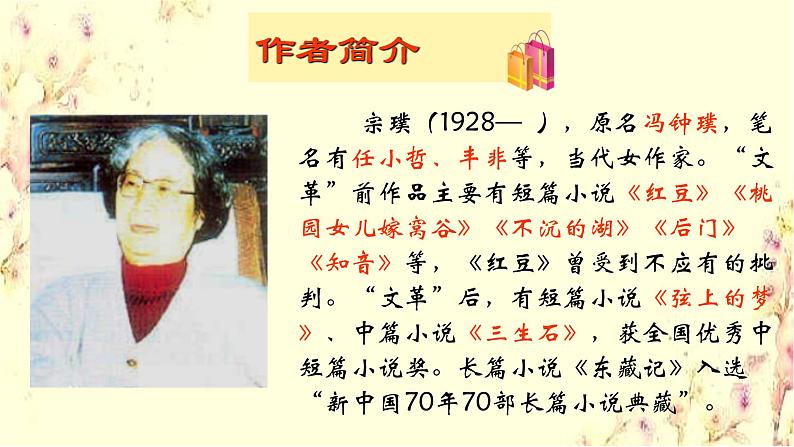 作者简介
宗璞（1928— ），原名冯钟璞，笔
名有任小哲、丰非等，当代女作家。“文
革”前作品主要有短篇小说《红豆》《桃
园女儿嫁窝谷》《不沉的湖》《后门》
《知音》等，《红豆》曾受到不应有的批
判。“文革”后，有短篇小说《弦上的梦
》、中篇小说《三生石》，获全国优秀中
短篇小说奖。长篇小说《东藏记》入选
“新中国70年70部长篇小说典藏”。